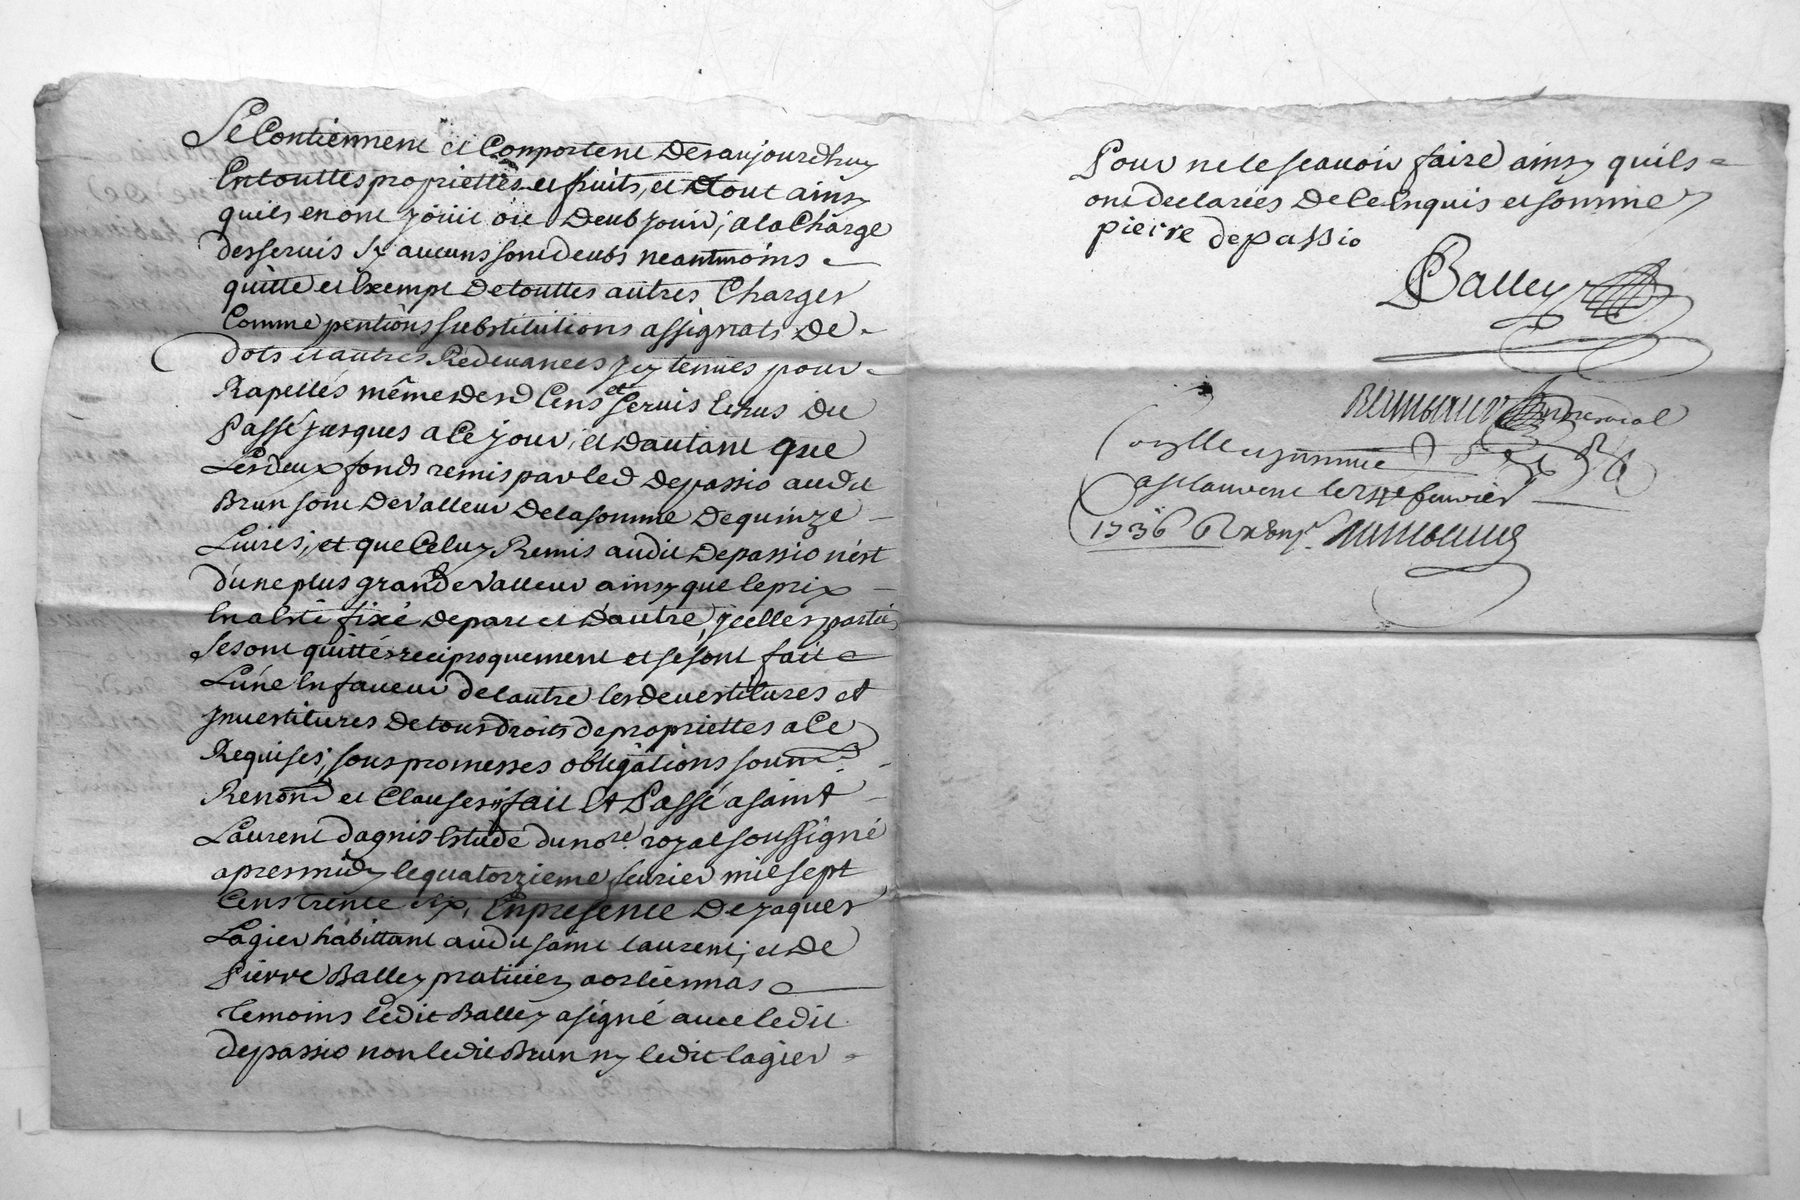 Se Contiennent et Comportent des aujourdhuy
Entouttes propriettés et fruits, et tout ainsy
quils en ont joüit oue deub jouir, a la Charge
des servis sy aucuns sont deubs neantmoins
quitte et Exempt de touttes autres Charges
Comme pentions substitutions assignats de
dots et autres Redevances jcy tenües pour
Rapellés même desd Cens et servis Erus du
Passé jusques a Ce jour, et dautant que
Les deux fonds remis par led depassio audit
Brun sont de valleur de la somme de quinze
Livres, et que Celuy Remis audit depassio n'est
dune plus grande valleur ainsy que le prix
En a Eté fixé de part et dautre, jcelles partie
se sont quittés reciproquement et se sont fait
Lune En faveur de lautre les devestitures et
jnvestitures de tous droits de propriettes a Ce
Requises, sous promesses obligations soum.
Renond et Clauses, fait Et Passé a saint
Laurent dagnis Estude du nore. royal soussigné
apres midy le quatorzieme fevrier mil sept
Cens trente six, En presence de jaques
Lagier habittant audit saint laurent, et de
Pierre Balley praticien a orliennas
temoins ledit Balley a signé avec ledit
depassio non ledit Brun ny ledit lagier
Pour ne le scavoir faire ainsy quils
ont declarés de Ce Enquis et sommés
pierre depassio
Balley
no royal
a st laurent le fevrier
1736